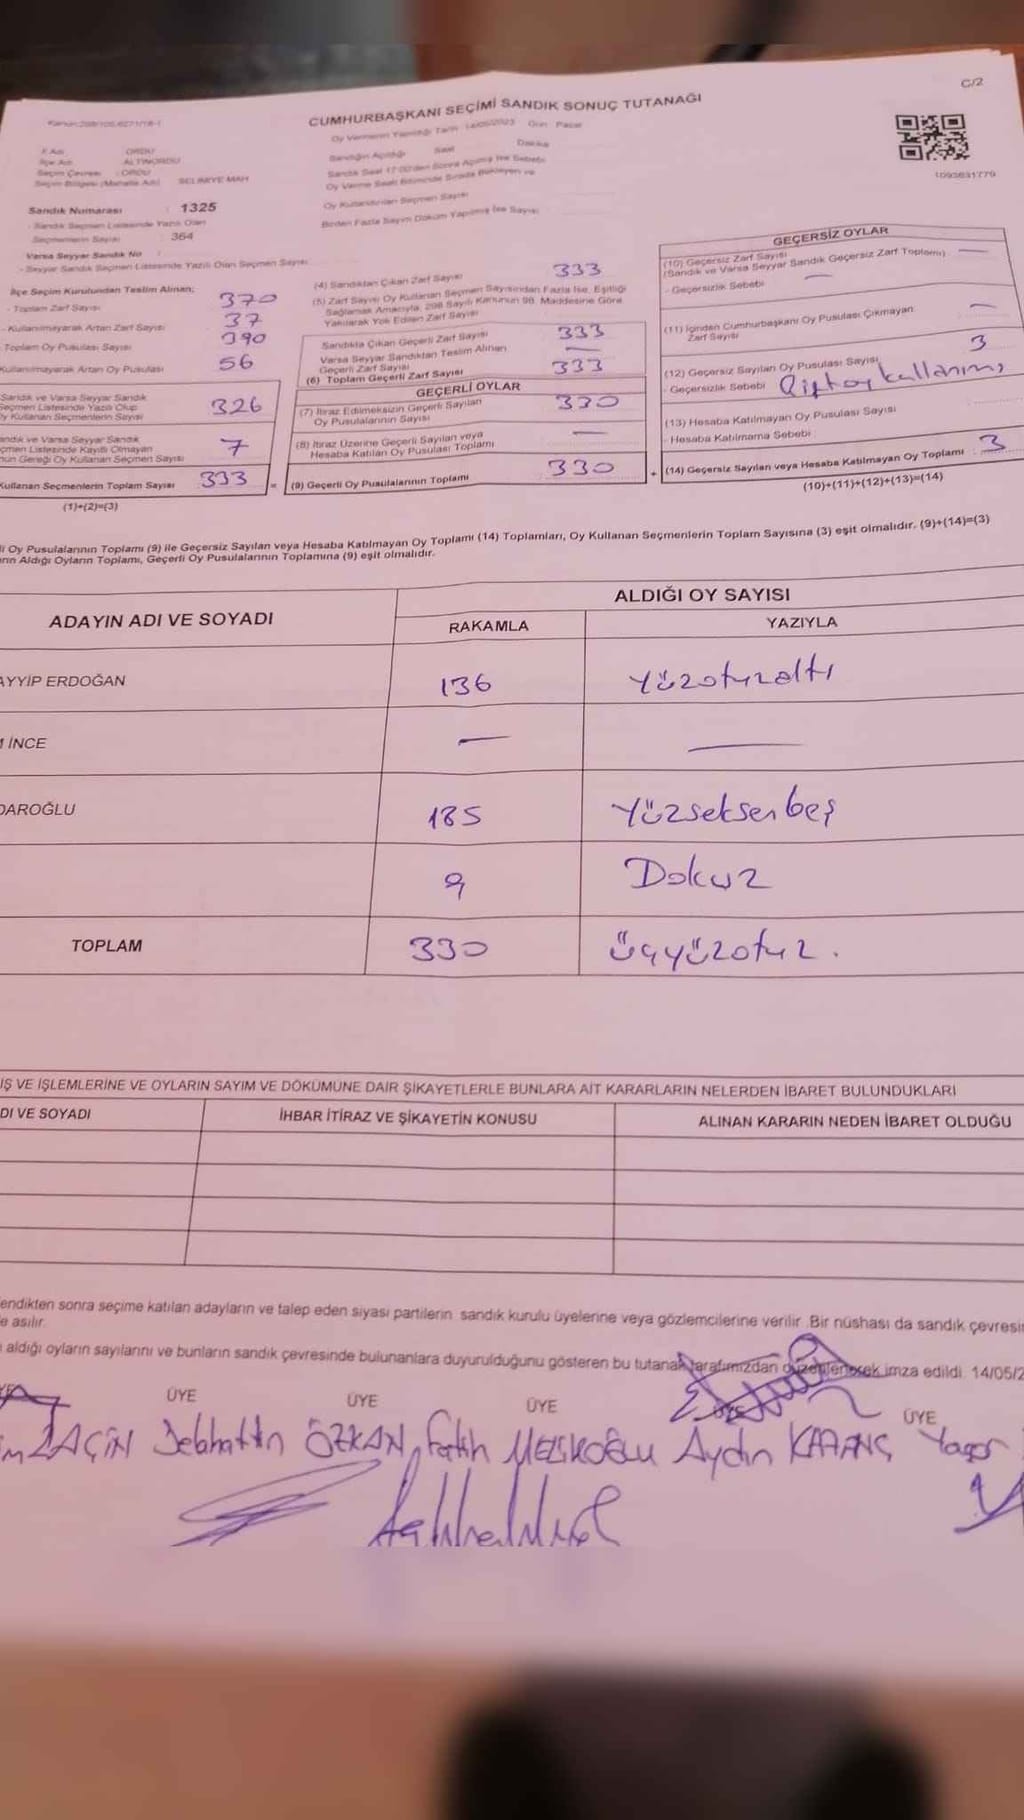 C/2
CUMHURBAŞKANI SEÇİMİ SANDIK SONUÇ TUTANAĞI
Oy Vermenin Yapıldığı Tarih : 14/05/2023 Gün : Pazar
İl Adı : ORDU
İlçe Adı : ALTINORDU
Seçim Çevresi : ORDU
Seçim Bölgesi (Mahalle Adı) : SELİMİYE MAH
Sandık Numarası : 1325
- Sandık Seçmen Listesinde Yazılı Olan
Seçmenlerin Sayısı : 364
Varsa Seyyar Sandık No :
- Seyyar Sandık Seçmen Listesinde Yazılı Olan Seçmen Sayısı
Sandığın Açıldığı Saat Dakika
Sandık Saat 17:00'den Sonra Açılmış İse Sebebi
Oy Verme Saati Bitiminde Sırada Bekleyen ve
Oy Kullandırılan Seçmen Sayısı
Birden Fazla Sayım Döküm Yapılmış İse Sayısı
1093631779
İlçe Seçim Kurulundan Teslim Alınan;
- Toplam Zarf Sayısı 370
- Kullanılmayarak Artan Zarf Sayısı 37
Toplam Oy Pusulası Sayısı 390
Kullanılmayarak Artan Oy Pusulası 56
Sandık ve Varsa Seyyar Sandık
Seçmen Listesinde Yazılı Olup
Oy Kullanan Seçmenlerin Sayısı 326
Sandık ve Varsa Seyyar Sandık
Seçmen Listesinde Kayıtlı Olmayan
Kanun Gereği Oy Kullanan Seçmen Sayısı 7
Kullanan Seçmenlerin Toplam Sayısı 333
(1)+(2)=(3)
(4) Sandıktan Çıkan Zarf Sayısı 333
(5) Zarf Sayısı Oy Kullanan Seçmen Sayısından Fazla İse, Eşitliği
Sağlamak Amacıyla, 298 Sayılı Kanunun 98. Maddesine Göre
Yakılarak Yok Edilen Zarf Sayısı
Sandıkta Çıkan Geçerli Zarf Sayısı 333
Varsa Seyyar Sandıktan Teslim Alınan
Geçerli Zarf Sayısı —
(6) Toplam Geçerli Zarf Sayısı 333
GEÇERLİ OYLAR
(7) İtiraz Edilmeksizin Geçerli Sayılan
Oy Pusulalarının Sayısı 330
(8) İtiraz Üzerine Geçerli Sayılan veya
Hesaba Katılan Oy Pusulası Toplamı —
= (9) Geçerli Oy Pusulalarının Toplamı 330 +
GEÇERSİZ OYLAR
(10) Geçersiz Zarf Sayısı
(Sandık ve Varsa Seyyar Sandık Geçersiz Zarf Toplamı) —
- Geçersizlik Sebebi —
(11) İçinden Cumhurbaşkanı Oy Pusulası Çıkmayan
Zarf Sayısı —
(12) Geçersiz Sayılan Oy Pusulası Sayısı 3
- Geçersizlik Sebebi Çift oy kullanımı
(13) Hesaba Katılmayan Oy Pusulası Sayısı
- Hesaba Katılmama Sebebi
(14) Geçersiz Sayılan veya Hesaba Katılmayan Oy Toplamı : 3
(10)+(11)+(12)+(13)=(14)
li Oy Pusulalarının Toplamı (9) ile Geçersiz Sayılan veya Hesaba Katılmayan Oy Toplamı (14) Toplamları, Oy Kullanan Seçmenlerin Toplam Sayısına (3) eşit olmalıdır. (9)+(14)=(3)
arın Aldığı Oyların Toplamı, Geçerli Oy Pusulalarının Toplamına (9) eşit olmalıdır.
ADAYIN ADI VE SOYADI ALDIĞI OY SAYISI
RAKAMLA YAZIYLA
AYYİP ERDOĞAN 136 Yüzotuzaltı
M İNCE — —
DAROĞLU 185 Yüzseksenbeş
9 Dokuz
TOPLAM 330 Üçyüzotuz.
İŞ VE İŞLEMLERİNE VE OYLARIN SAYIM VE DÖKÜMÜNE DAİR ŞİKAYETLERLE BUNLARA AİT KARARLARIN NELERDEN İBARET BULUNDUKLARI
DI VE SOYADI İHBAR İTİRAZ VE ŞİKAYETİN KONUSU ALINAN KARARIN NEDEN İBARET OLDUĞU
endikten sonra seçime katılan adayların ve talep eden siyasi partilerin sandık kurulu üyelerine veya gözlemcilerine verilir. Bir nüshası da sandık çevresi
e asılır.
aldığı oyların sayılarını ve bunların sandık çevresinde bulunanlara duyurulduğunu gösteren bu tutanak tarafımızdan düzenlenerek imza edildi. 14/05/2
ÜYE ÜYE ÜYE ÜYE ÜYE
LAÇİN Selahattin ÖZKAN Fatih Aydın Yaşar